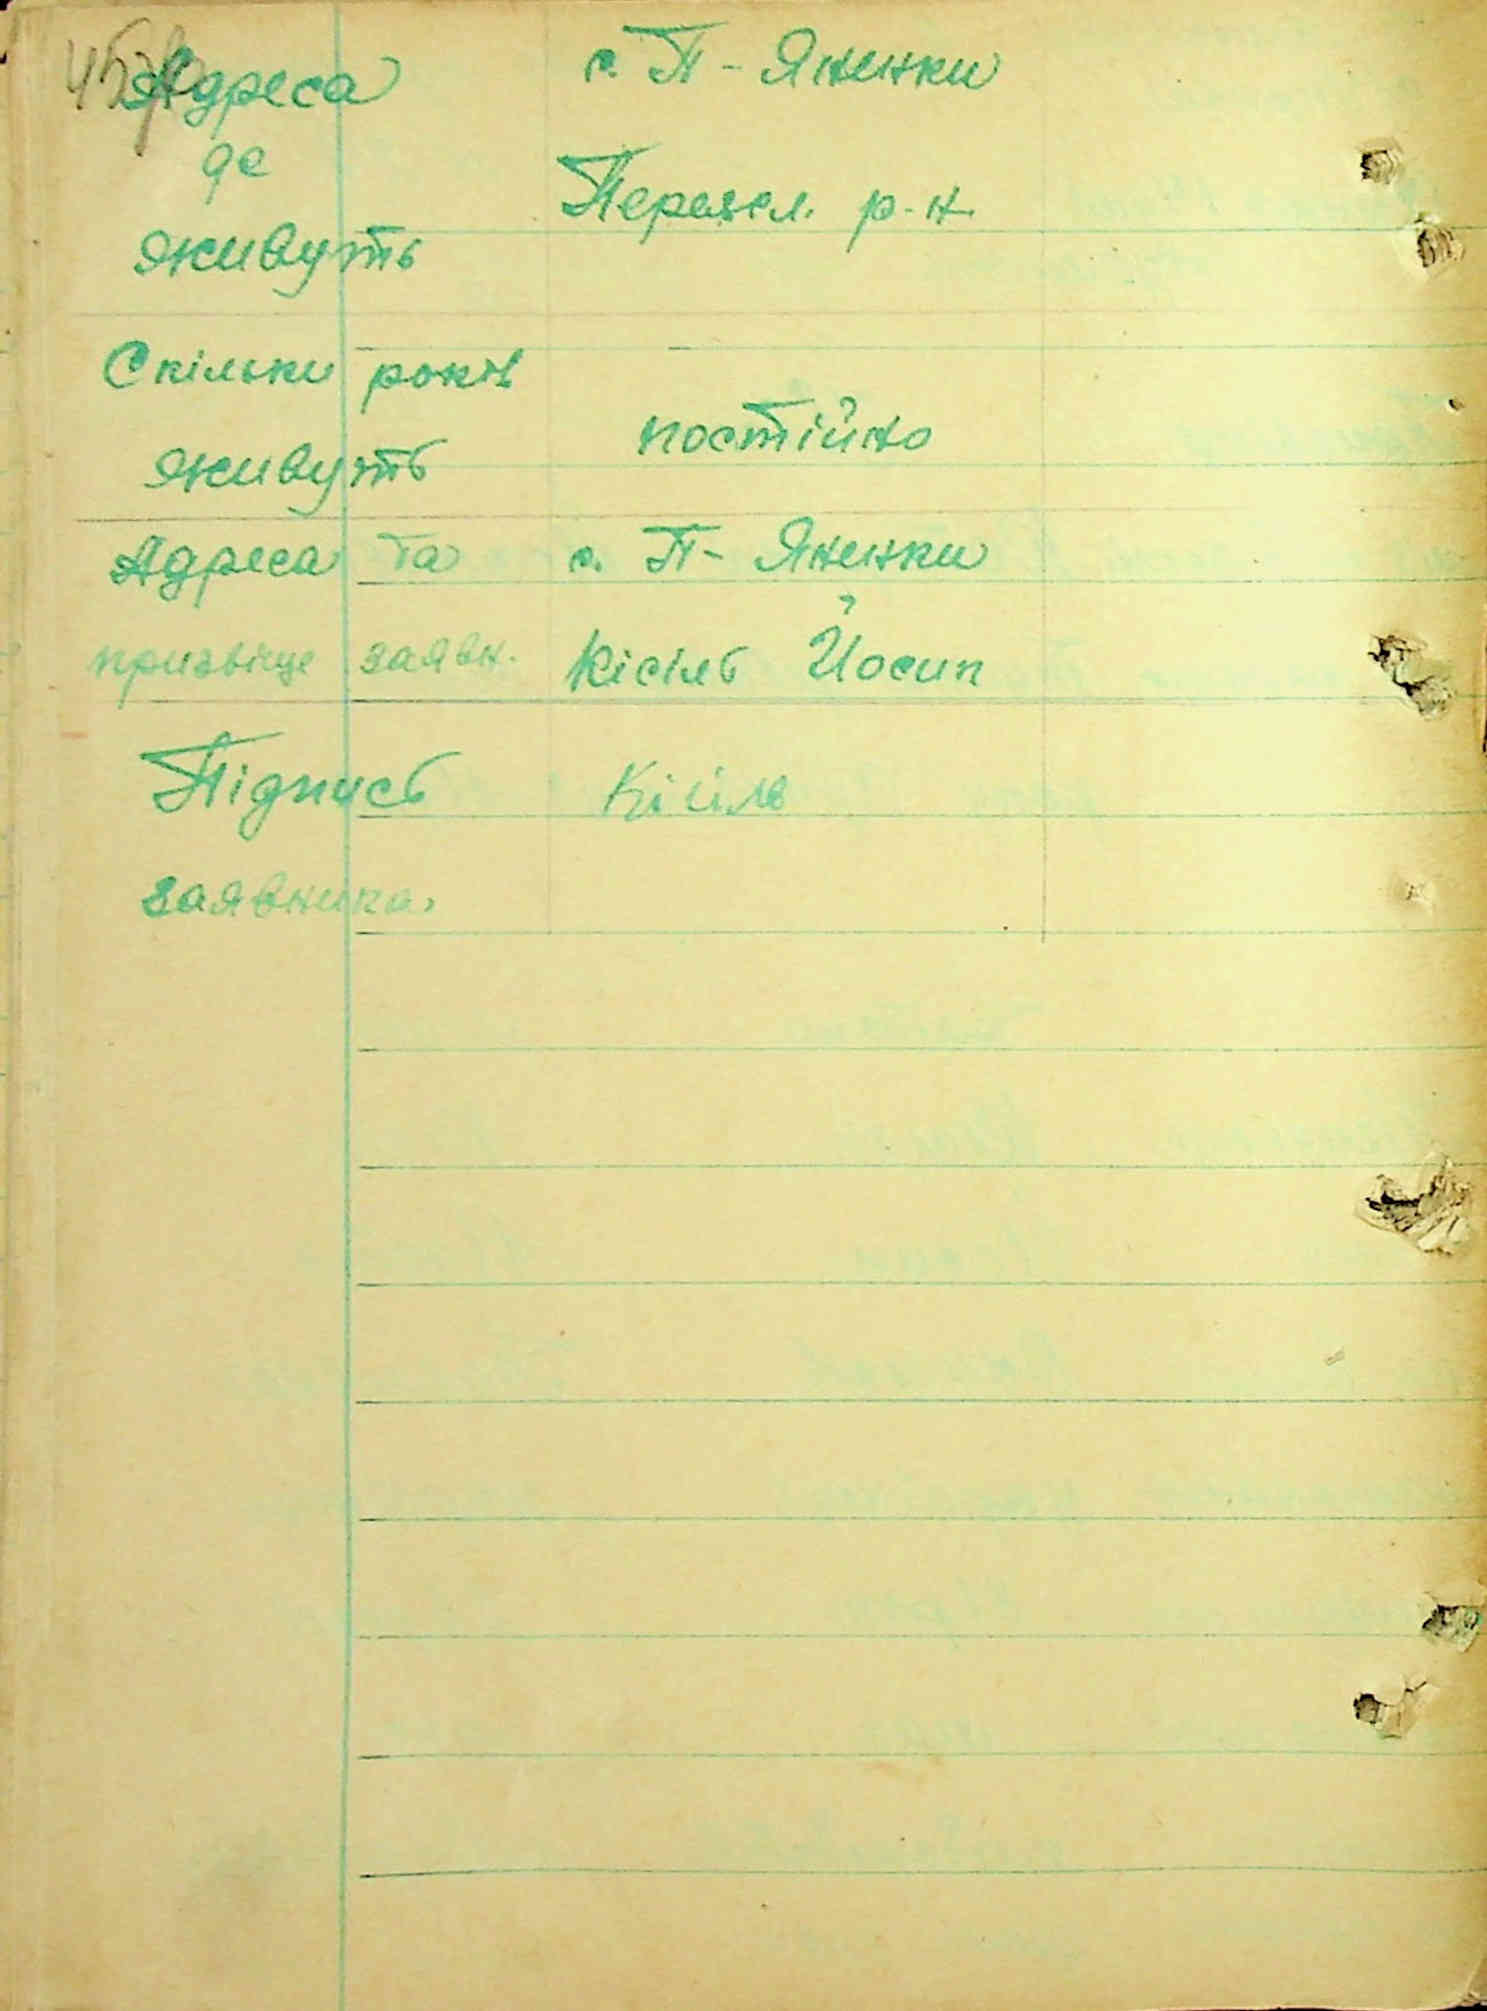 Адреса с. П-Яненки
де
Переясл. р-н.
живуть
Скільки років
постійно
живуть
Адреса та с. П- Яненки
призвіще заявн. Кісіль Йосип
Підпись Кісіль
заявника.